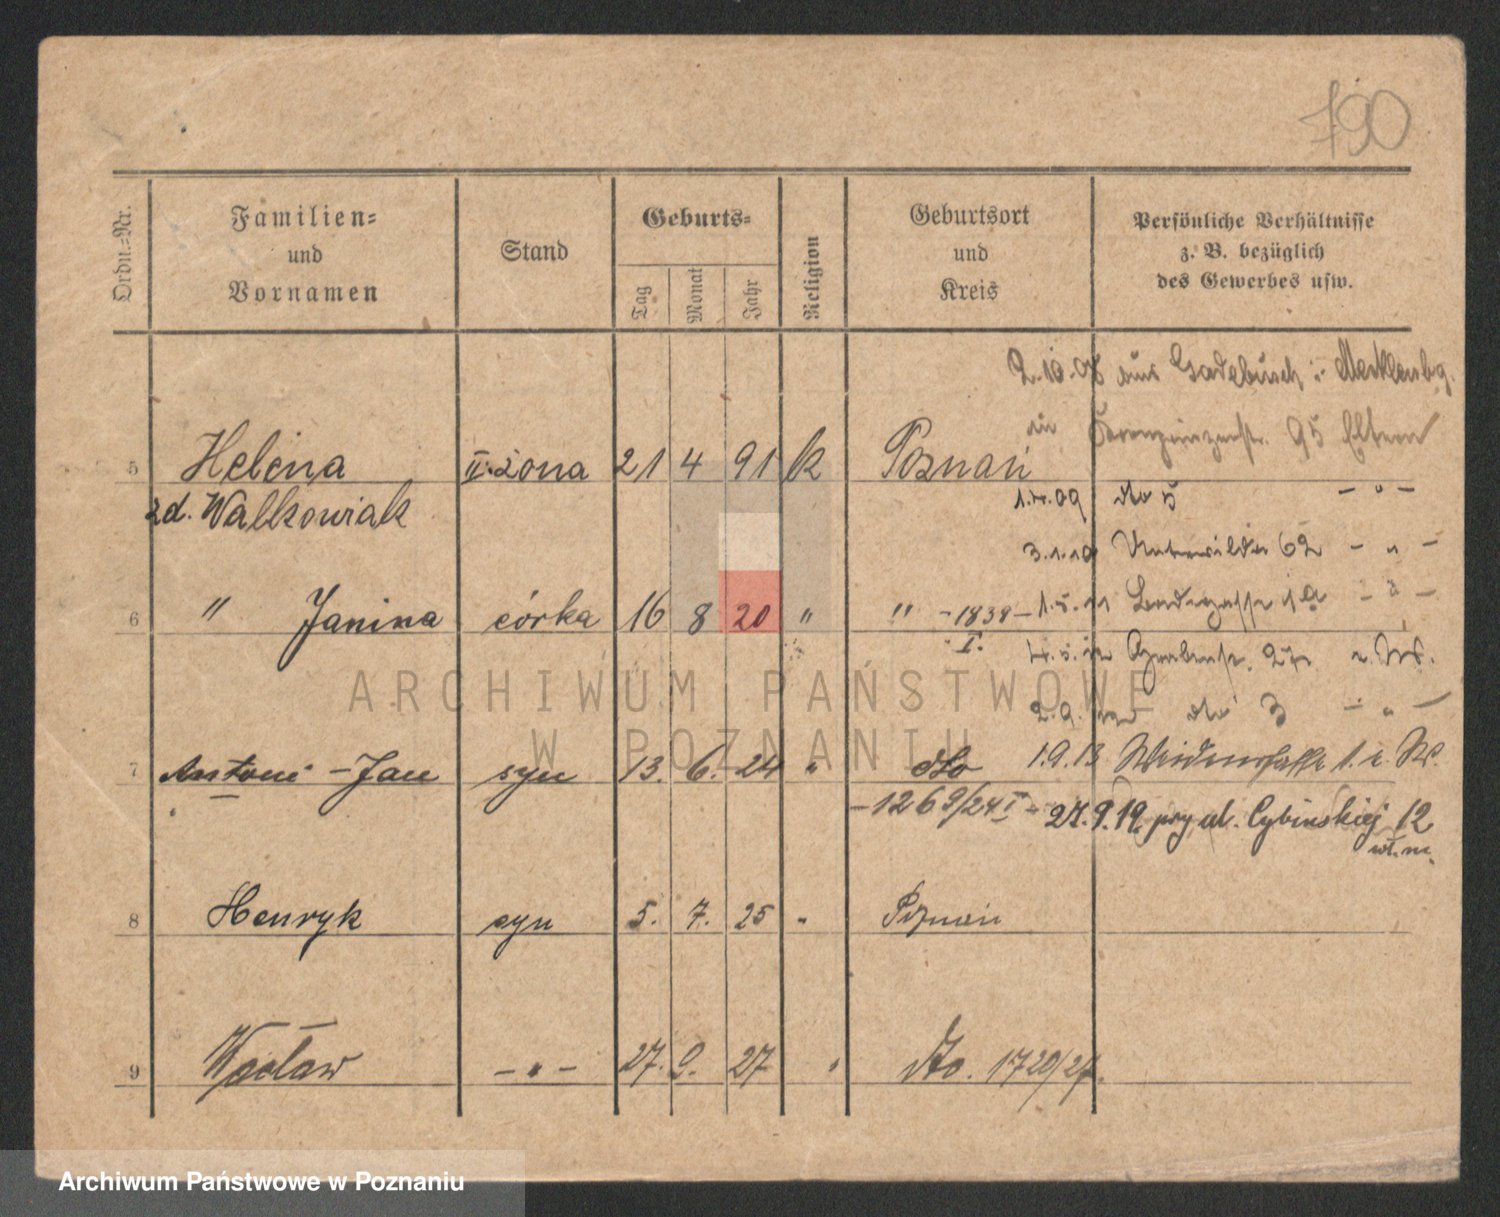 790
Ordn.-Nr.
Familien-
und
Vornamen
Stand
Geburts-
Tag
Monat
Jahr
Religion
Geburtsort
und
Kreis
Persönliche Verhältnisse
z. B. bezüglich
des Gewerbes usw.
2.10.08 aus Gadebusch i. Mecklenbg.
in Kronprinzenstr. 95 Eltern
5 Helena II. żona 21 4 91 k Poznań
zd. Walkowiak
1.4.09 dto 5 - " -
3.1.10 Unterwilda 62 - " -
6 " Janina córka 16 8 20 " " -1839- 1.5.11
I.
Grabenstr.
2.9. dto 3 - " -
7 Antoni - Jan syn 13. 6. 24 " dto 1.9.13
-1269/24 I- 27.9.19 przy ul. Cybińskiej 12
wł. m.
8 Henryk syn 5. 7. 25 " Poznań
9 Wacław - " - 27. 9. 27 " dto. 1720/27.
ARCHIWUM PAŃSTWOWE
W POZNANIU
Archiwum Państwowe w Poznaniu